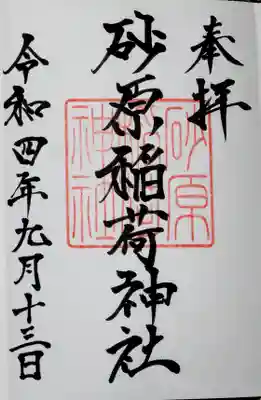 奉拝
砂原稲荷神社
砂原
神社
令和四年九月十三日